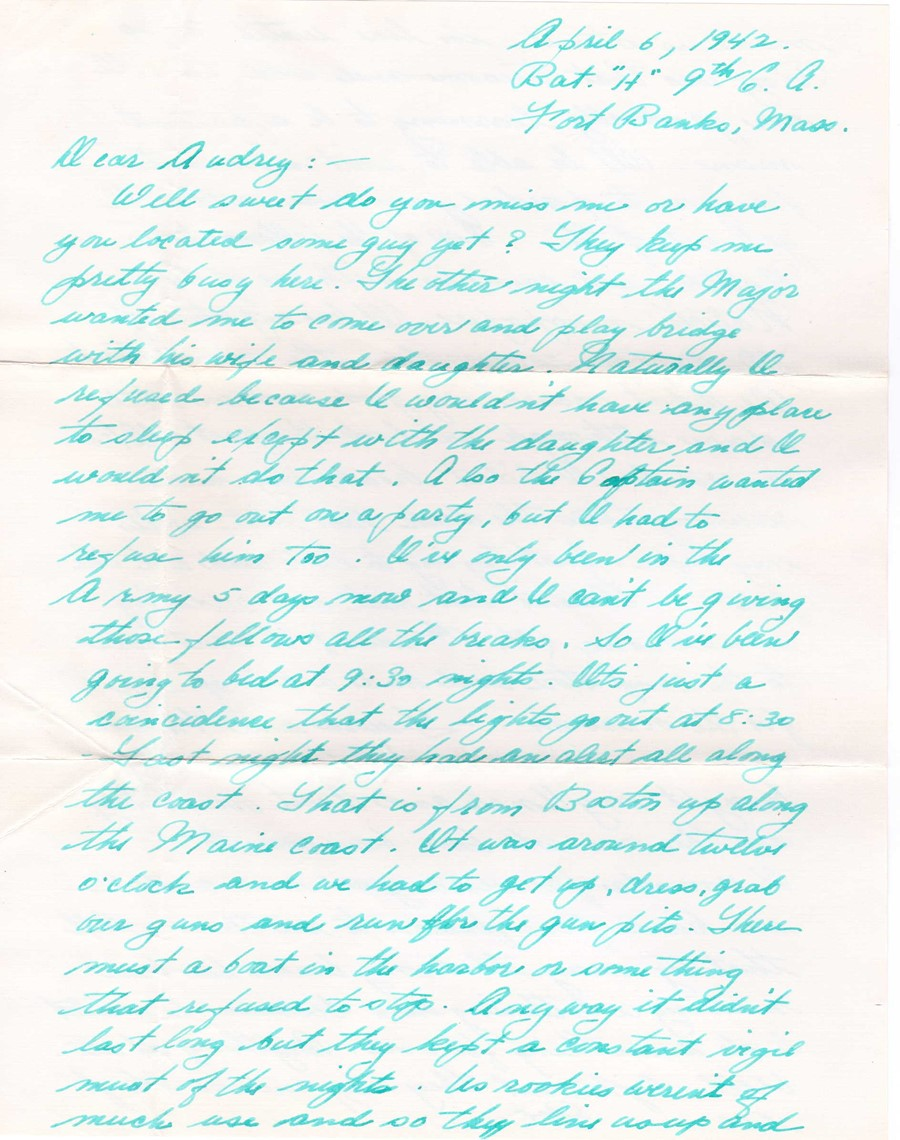 April 6, 1942.
Bat. "H" 9th C. A.
Fort Banks, Mass.
Dear Audrey: —
Well sweet do you miss me or have
you located some guy yet? They keep me
pretty busy here. The other night the Major
wanted me to come over and play bridge
with his wife and daughter. Naturally I
refused because I wouldn't have any place
to sleep except with the daughter and I
wouldn't do that. Also the Captain wanted
me to go out on a party, but I had to
refuse him too. I've only been in the
Army 5 days now and I can't be giving
those fellows all the breaks. So I've been
going to bed at 9:30 nights. It's just a
coincidence that the lights go out at 8:30
Last night they had an alert all along
the coast. That is from Boston up along
the Maine coast. It was around twelve
o'clock and we had to get up, dress, grab
our guns and run for the gun pits. There
must a boat in the harbor or something
that refused to stop. Anyway it didn't
last long but they kept a constant vigil
most of the nights. Us rookies weren't of
much use and so they line us up and